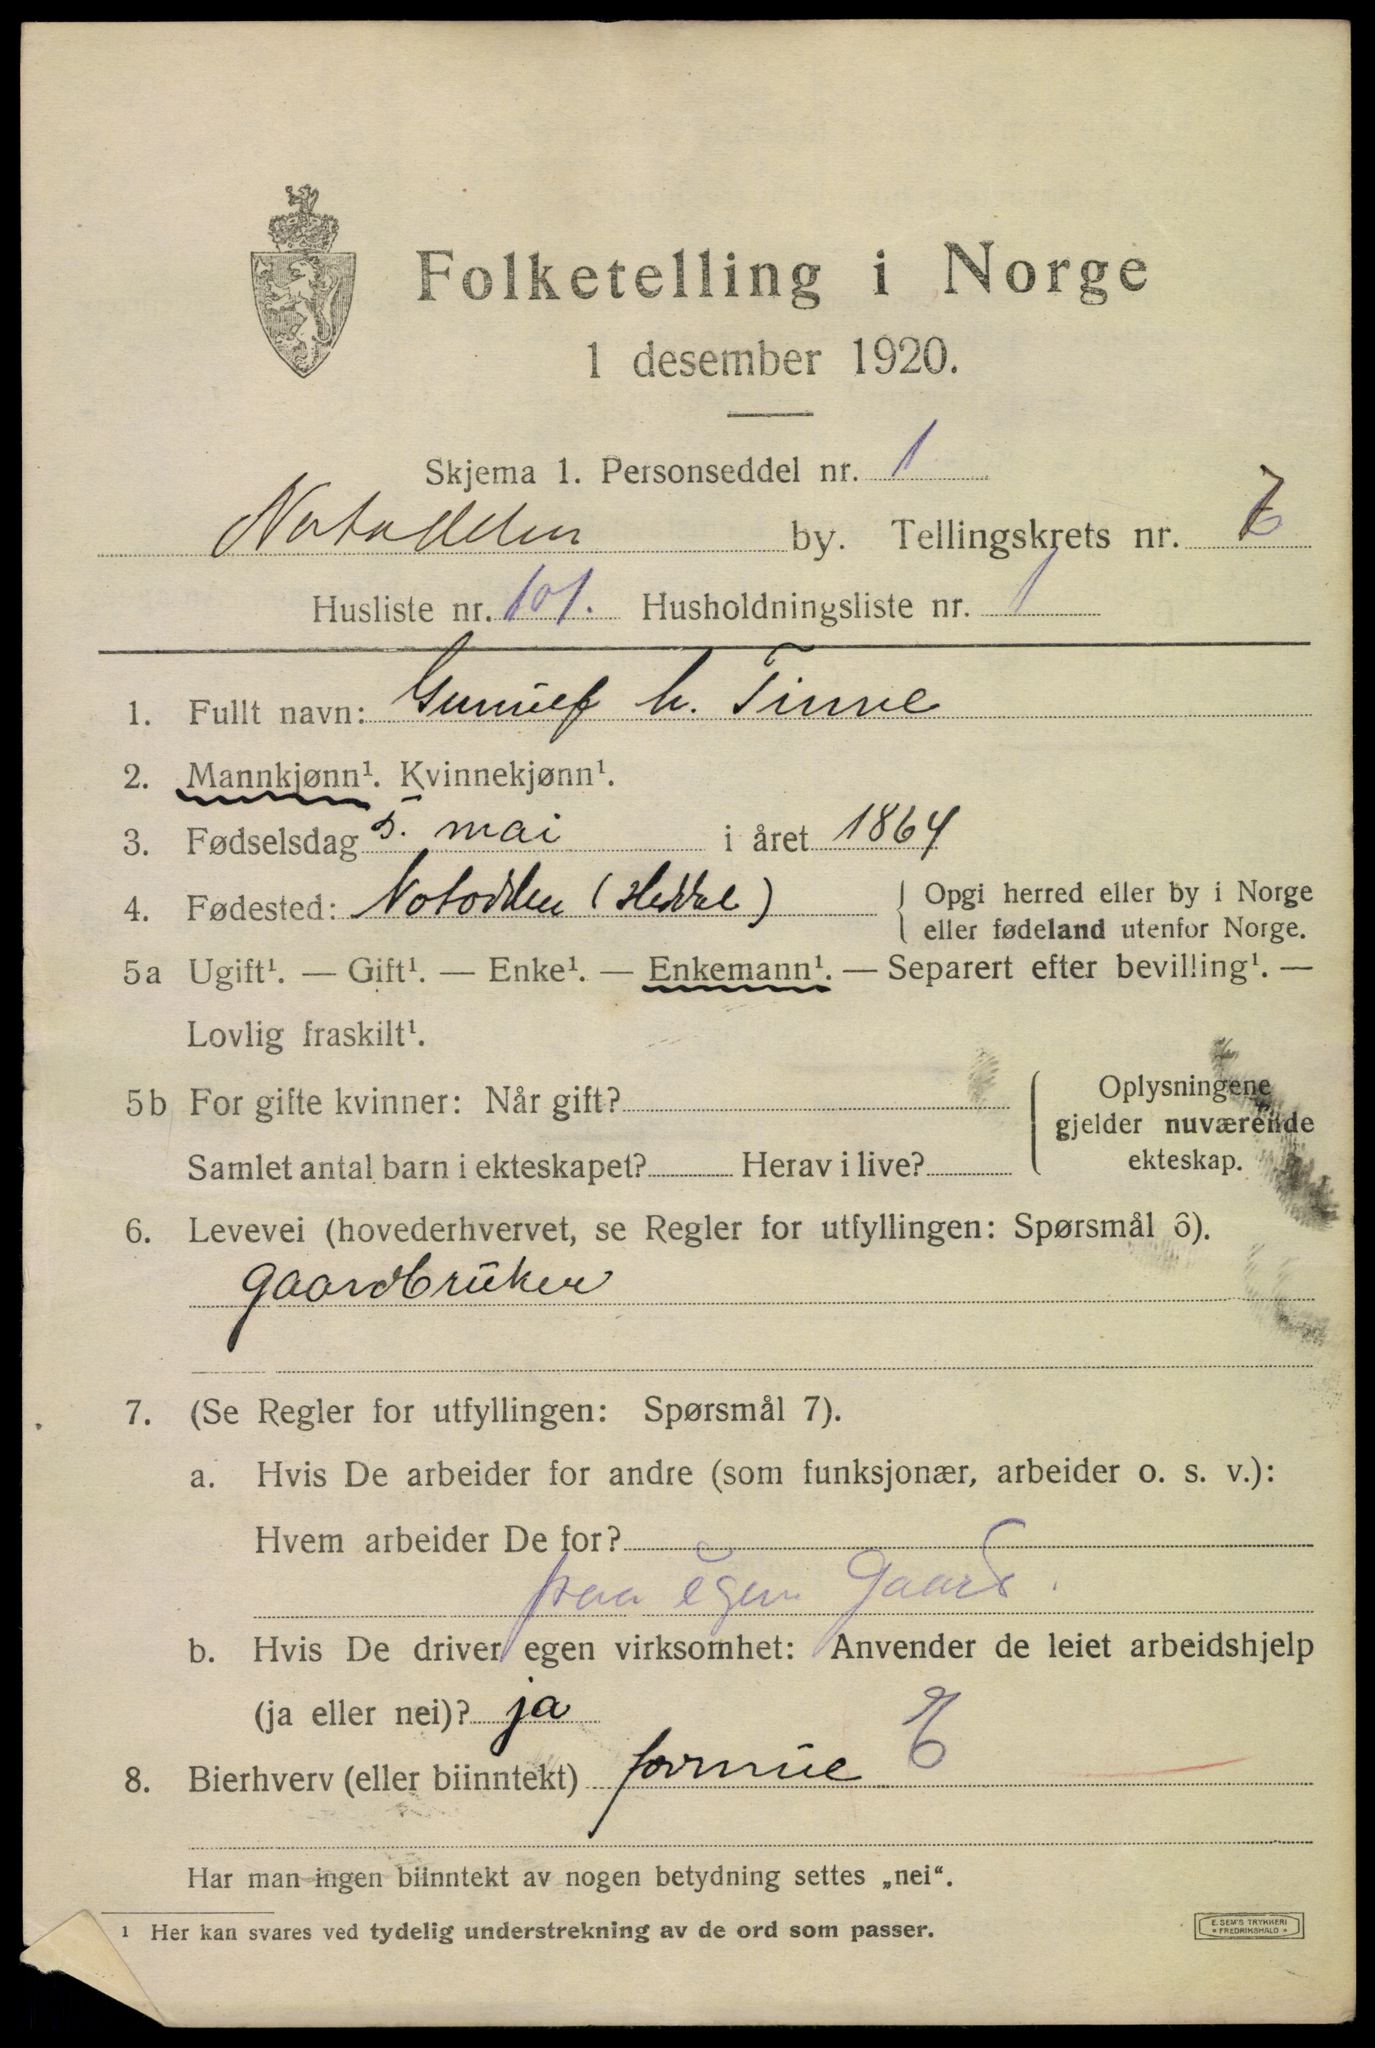 Folketelling i Norge
1 desember 1920.
Skjema 1. Personseddel nr. 1
Notodden by. Tellingskrets nr.
Husliste nr. 101. Husholdningsliste nr. 1
1. Fullt navn: Gunulf h. Tinne
2. Mannkjønn¹. Kvinnekjønn¹.
3. Fødselsdag 5. mai i året 1864
4. Fødested: Notodden (Heddal)
Opgi herred eller by i Norge
eller fødeland utenfor Norge.
5a Ugift¹. — Gift¹. — Enke¹. — Enkemann¹. — Separert efter bevilling¹. —
Lovlig fraskilt¹.
5b For gifte kvinner: Når gift?
Samlet antal barn i ekteskapet? Herav i live?
Oplysningene
gjelder nuværende
ekteskap.
6. Levevei (hovederhvervet, se Regler for utfyllingen: Spørsmål 6).
gaardbruker
7. (Se Regler for utfyllingen: Spørsmål 7).
a. Hvis De arbeider for andre (som funksjonær, arbeider o. s. v.):
Hvem arbeider De for?
paa egen Gaard.
b. Hvis De driver egen virksomhet: Anvender de leiet arbeidshjelp
(ja eller nei)? ja
8. Bierhverv (eller biinntekt) formue E
Har man ingen biinntekt av nogen betydning settes „nei“.
¹ Her kan svares ved tydelig understrekning av de ord som passer.
E. SEM'S TRYKKERI
FREDRIKSHALD